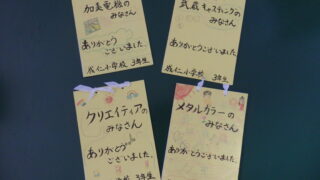 加美電機の
みなさん
ありがとう
ございました。
成仁小学校 3年生
武蔵キャスティングの
みなさん
ありがとうございました。
成仁小学校 3年生
クリエイティアの
みなさん
ありがとう
ございました。
学校 3年生
メタルカラーの
みなさん
ありがとうございました。